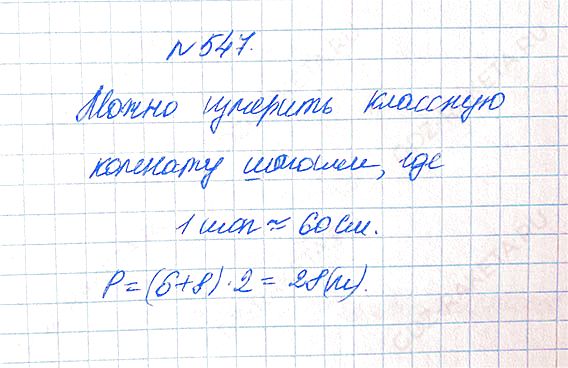 №547.
Можно измерить классную
комнату шагами, где
1 шаг ≈ 60 см.
P = (6+8)·2 = 28 (м).